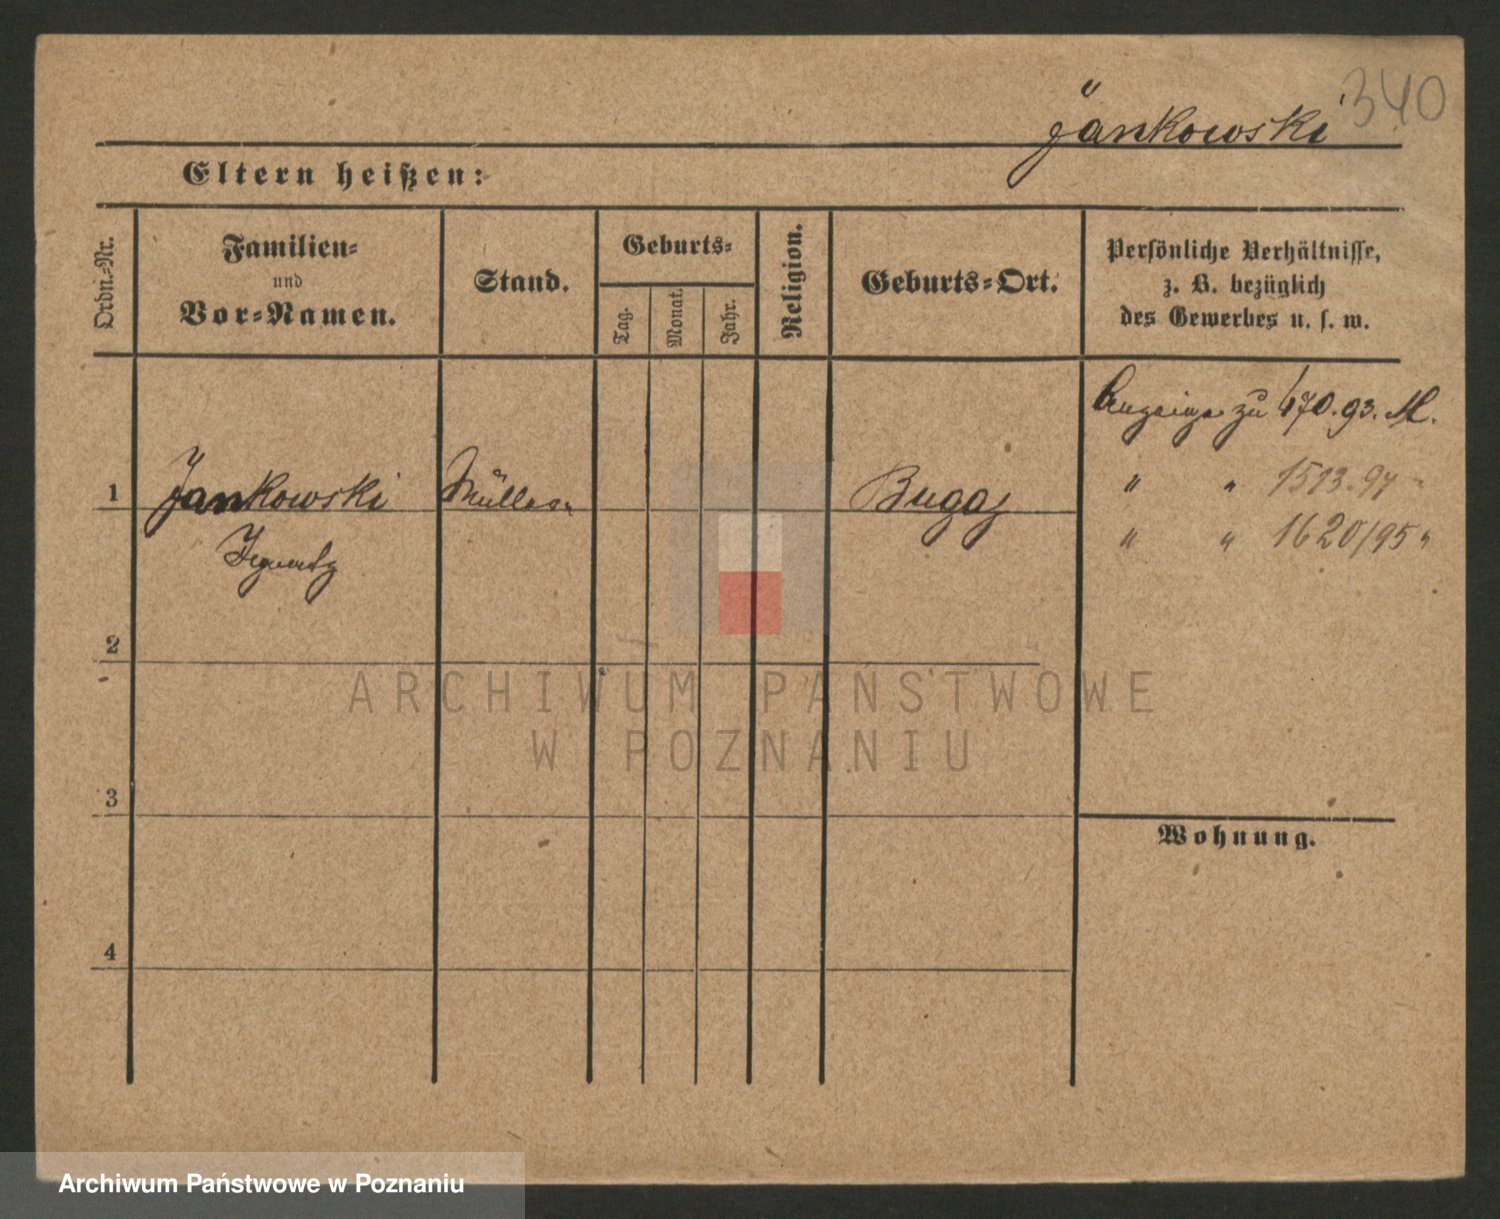 340
Jankowski
Eltern heißen:
Ordn.-Nr.
Familien-
und
Vor-Namen.
Stand.
Geburts-
Tag.
Monat.
Jahr.
Religion.
Geburts-Ort.
Persönliche Verhältnisse,
z. B. bezüglich
des Gewerbes u. s. w.
1
Jankowski
Ignatz
Müller
Bugaj
Anzeige zu 470.93. M.
" " 1513.94 "
" " 1620/95 "
2
3
4
Wohnung.
ARCHIWUM PAŃSTWOWE
W POZNANIU
Archiwum Państwowe w Poznaniu